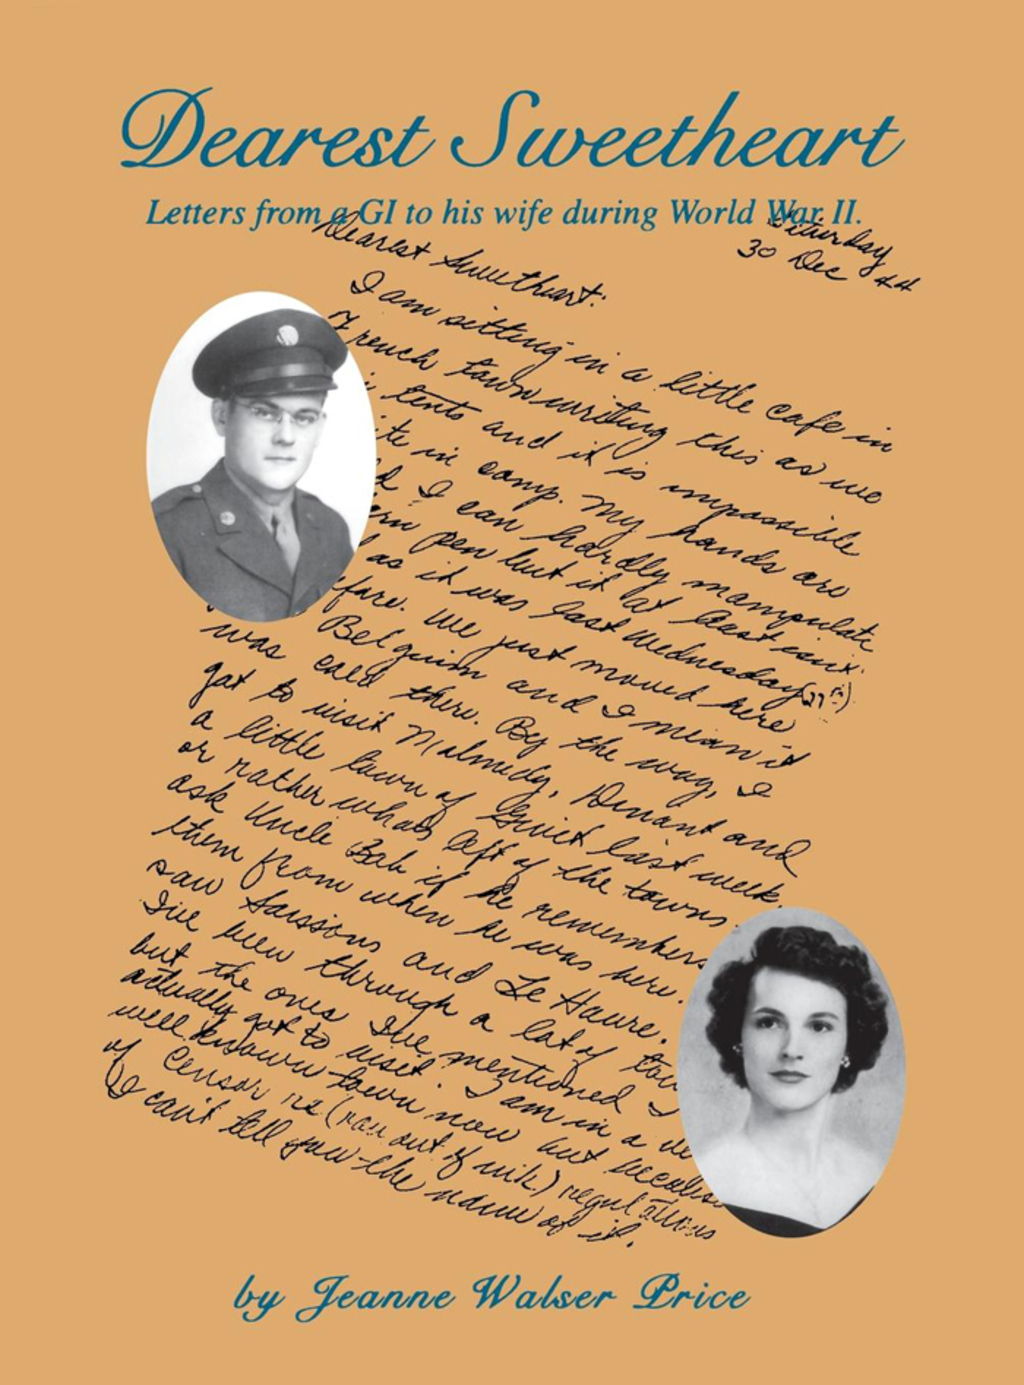 Dearest Sweetheart
Letters from a GI to his wife during World War II.
Saturday
30 Dec 44
Dearest Sweetheart:
I am sitting in a little cafe in
French town writing this as we
tents and it is impossible
ite in camp. My hands are
d I can hardly manipulate
ern pen but it at least isn't
as it was last Wednesday (27th)
ffare. We just moved here
Belguim and I mean it
was cold there. By the way, I
got to visit Malmedy, Dinant and
a little town of last week.
or rather whats left of the towns.
ask Uncle Bab if he remembers
them from when he was here.
saw Soissons and Le Havre.
I've been through a lot of tow
but the ones I've mentioned I
actually got to visit. I am in a ve
well known town now but because
of Censor rz (ran out of ink.) regulations
(I can't tell you the name of it.
by Jeanne Walser Price